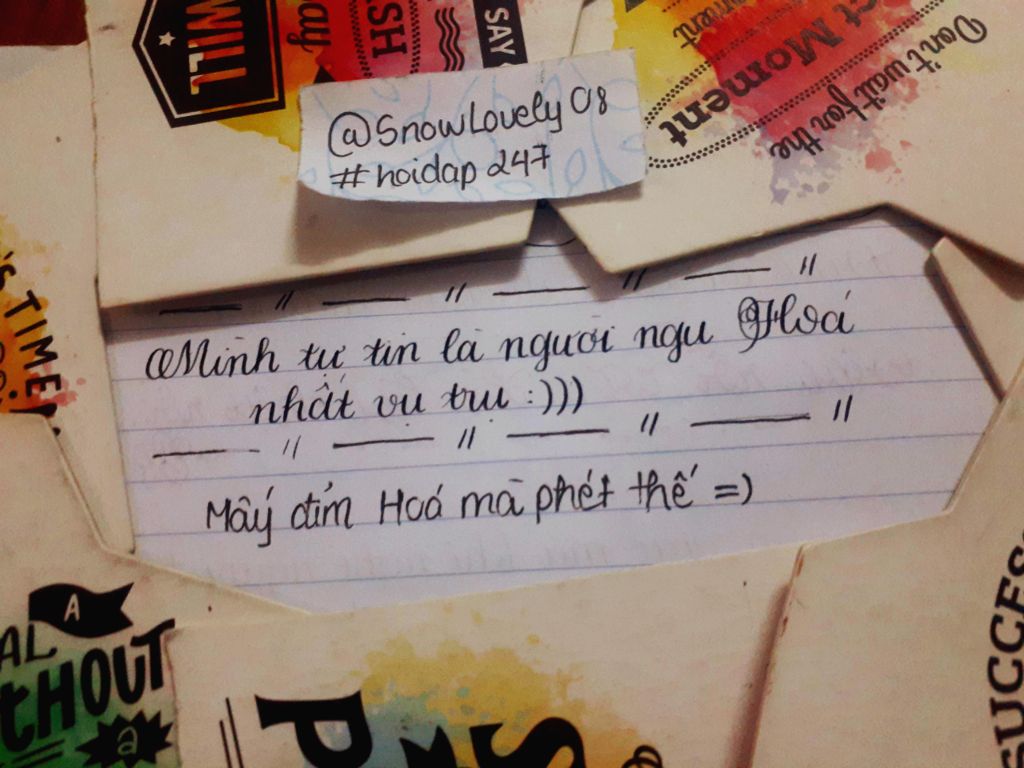 WILL
ay
SH
SAY
ct Moment
Don't wait for the
@SnowLovely08
#hoidap247
'S TIME!
Mình tự tin là người ngu Hoá
nhất vu tru :)))
Mấy đỉm Hoá mà phét thế =)
A
AL
tHOUT
a
P
S
SUCCES